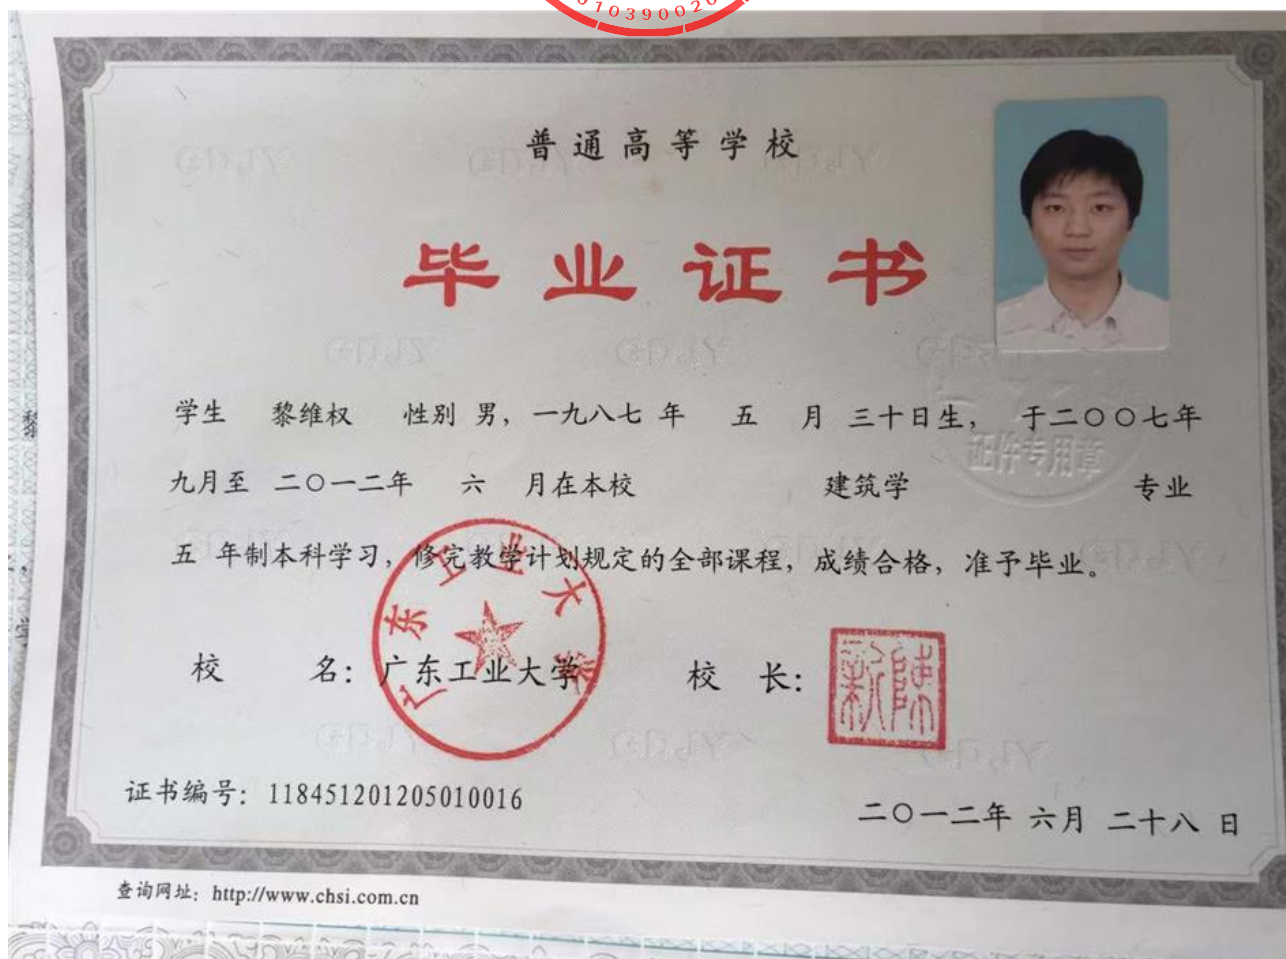 01039002
普通高等学校
毕业证书
学生 黎维权 性别 男，一九八七 年 五 月 三十日生， 于二〇〇七年
九月至 二〇一二年 六 月在本校 建筑学 专业
五 年制本科学习，修完教学计划规定的全部课程，成绩合格，准予毕业。
证件专用章
广东工业大学
校 名：广东工业大学 校 长：
证书编号：118451201205010016
二〇一二年 六月 二十八 日
查询网址：http://www.chsi.com.cn
黎